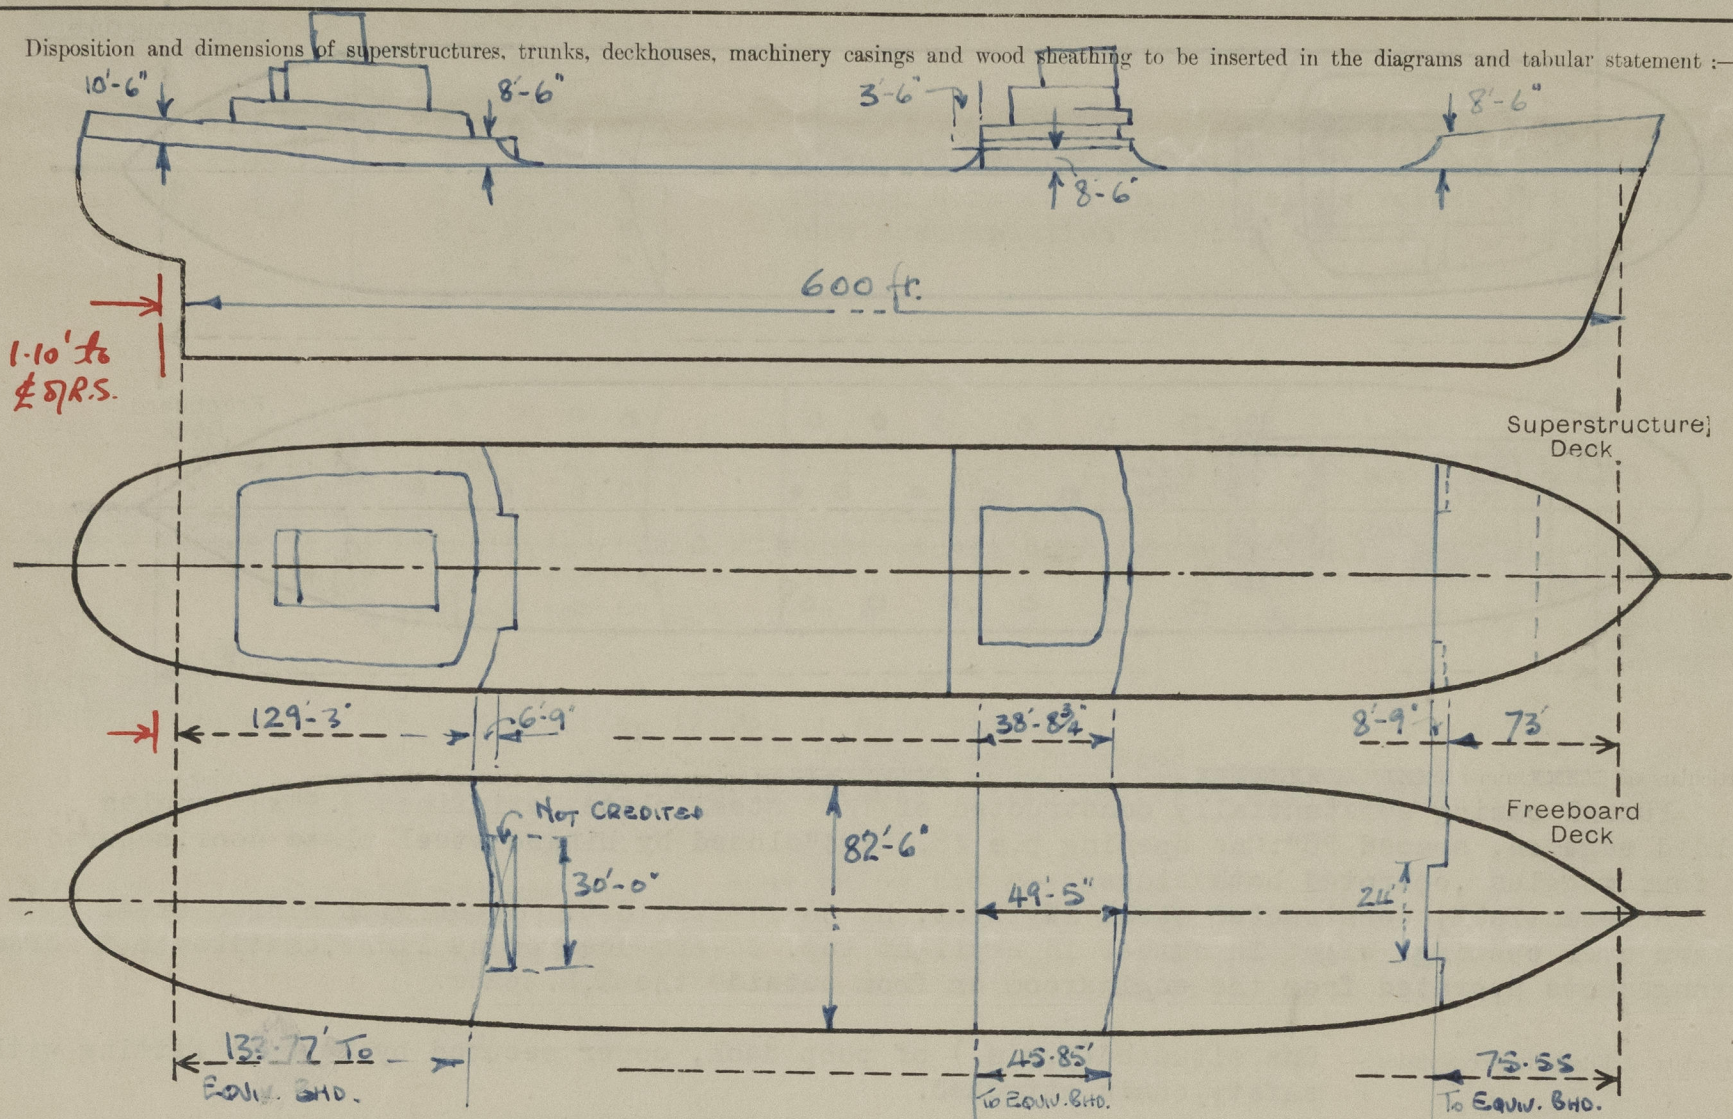 Disposition and dimensions of superstructures, trunks, deckhouses, machinery casings and wood sheathing to be inserted in the diagrams and tabular statement :—
10'-6"
8'-6"
3'-6"
8'-6"
8'-6"
600 ft.
1·10' to
℄ of R.S.
Superstructure
Deck
129'-3"
6'-9"
38'-8¾"
8'-9"
73'
NOT CREDITED
Freeboard
Deck
82'-6"
30'-0"
49'-5"
24'
133·77' TO
EQUIV. BHD.
45·85'
TO EQUIV. BHD.
75·55
TO EQUIV. BHD.